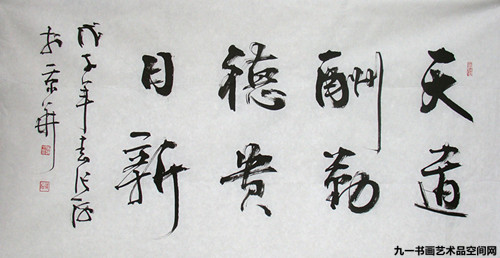 天道
酬勤
德贵
日新
戊子年
九一书画艺术品空间网